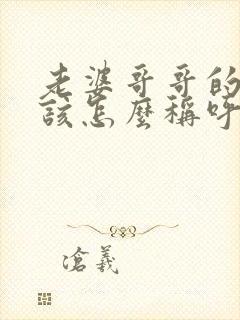 老婆哥哥的
该怎麼稱呼
沧義